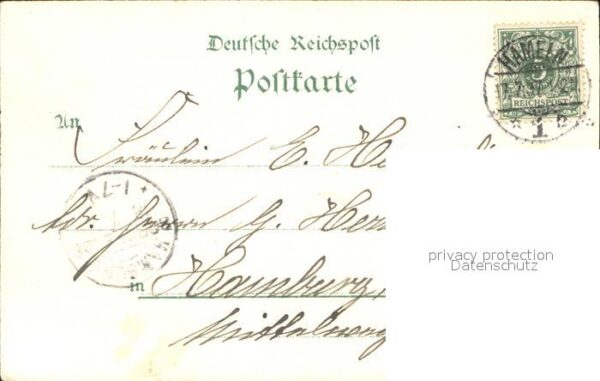 Deutsche Reichspost
Postkarte
HAMELN
REICHSPOST
1
An
Fräulein E. He
Adr. Herrn G. Herr
in Hamburg,
Mittelweg
privacy protection
Datenschutz